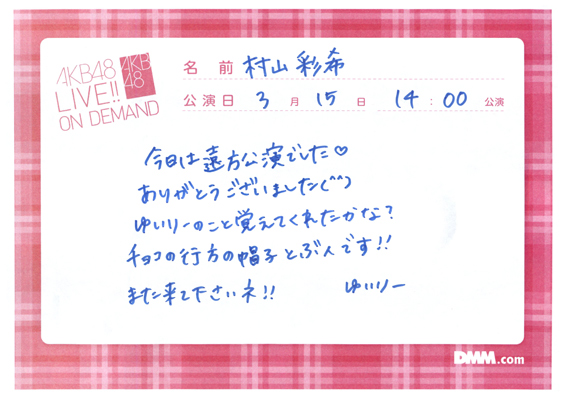 AKB48
LIVE!!
ON DEMAND
AKB
48
名前 村山彩希
公演日 3月15日 14:00公演
今日は遠方公演でした♡
ありがとうございました(^^)
ゆいりーのこと覚えてくれたかな?
チョコの行方の帽子とぶ人です!!
また来て下さいネ!! ゆいりー
DMM.com